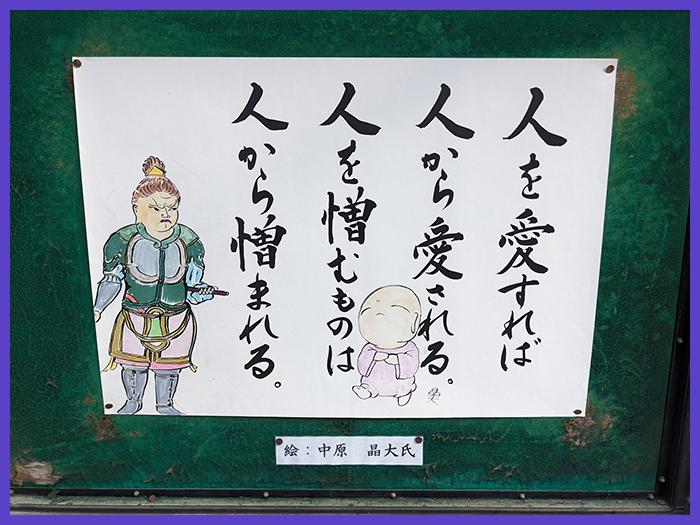 人を愛すれば
人から愛される。
人を憎むものは
人から憎まれる。
絵：中原　晶大氏